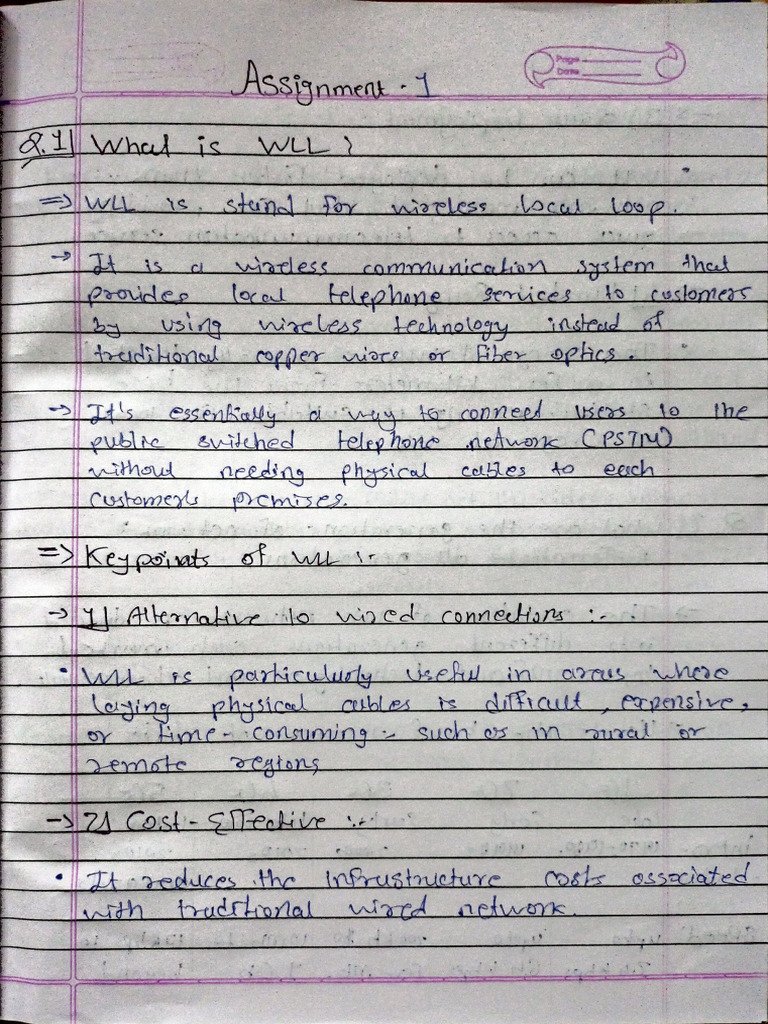 Page
Date
Assignment - 1
Q.1] What is WLL ?
=> WLL is stand for wireless local loop.
→ It is a wireless communication system that
provides local telephone services to customers
by using wireless technology instead of
traditional copper wires or fiber optics.
→ It's essentially a way to connect users to the
public switched telephone network (PSTN)
without needing physical cables to each
customer's premises.
=> Key points of WLL :-
→ 1] Alternative to wired connections :-
• WLL is particularly useful in areas where
laying physical cables is difficult, expensive,
or time-consuming - such as in rural or
remote regions
→ 2] Cost-Effective :-
• It reduces the infrastructure costs associated
with traditional wired network.